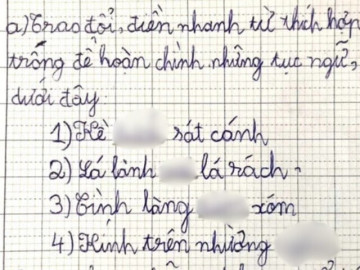 a) Trao đổi, điền nhanh từ thích hợp
trống để hoàn chỉnh những tục ngữ,
dưới đây
1) Kề sát cánh
2) Lá lành lá rách.
3) Tình làng xóm
4) Kính trên nhường